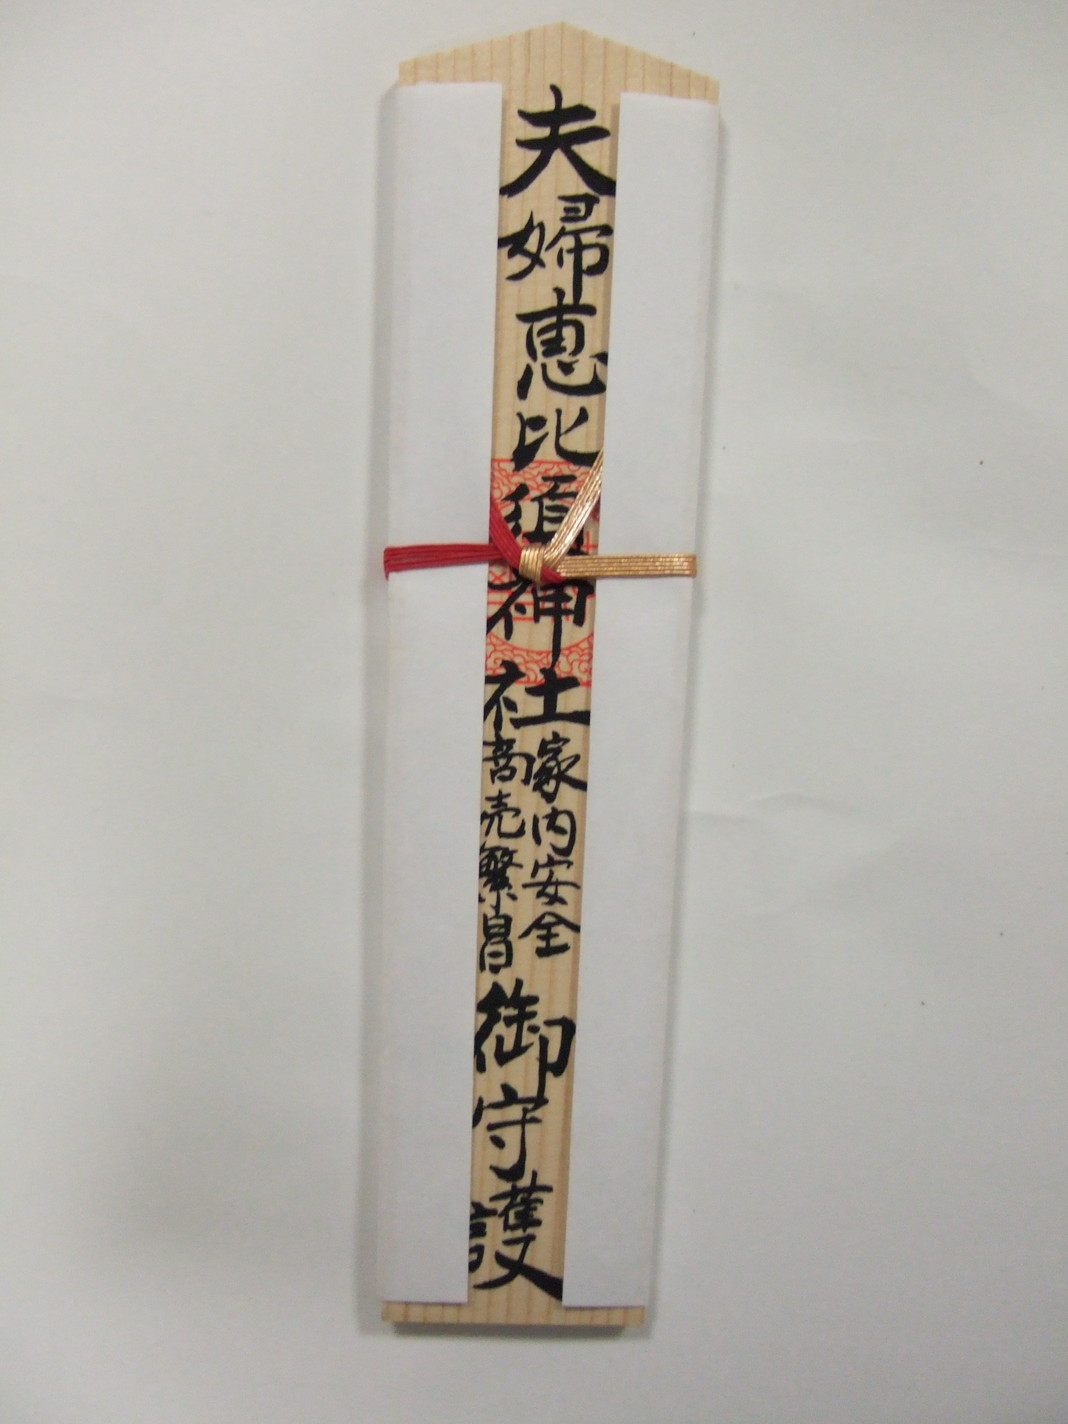 夫婦恵比須神社
家内安全
商売繁昌
御守護